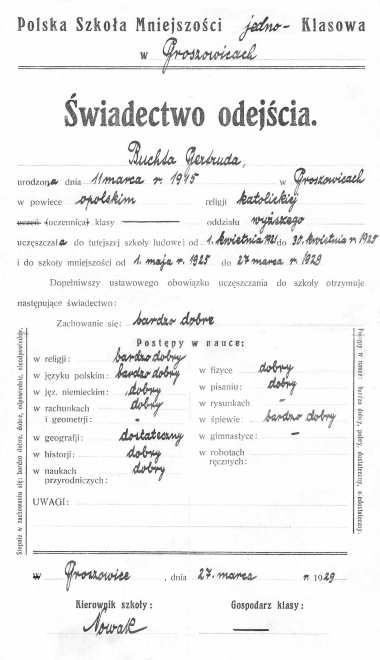 Polska Szkoła Mniejszości jedno- Klasowa
w Groszowicach
Świadectwo odejścia.
Buchta Gertruda,
urodzona dnia 11 marca r. 1915 w Groszowicach
w powiece opolskim religji katolickiej
uczeń (uczennica) klasy — oddziału wyższego
uczęszczała do tutejszej szkoły ludowej od 1. kwietnia 1921 do 30. kwietnia r. 1925
i do szkoły mniejszości od 1. maja r. 1925 do 27 marca r. 1929
Dopełniwszy ustawowego obowiązku uczęszczania do szkoły otrzymuje
następujące świadectwo:
Zachowanie się: bardzo dobre
Postępy w nauce:
w religji: bardzo dobry
w języku polskim: bardzo dobry
w jęz. niemieckim: dobry
w rachunkach dobry
i geometrji: -
w geografji: dostateczny
w historji: dobry
w naukach dobry
przyrodniczych:
w fizyce dobry
w pisaniu: dobry
w rysunkach -
w śpiewie: bardzo dobry
w gimnastyce: -
w robotach
ręcznych:
UWAGI:
Stopnie w zachowaniu się: bardzo dobre, dobre, odpowiednie, nieodpowiednie.
Postępy w nauce: bardzo dobry, dobry, dostateczny, niedostateczny.
w Groszowice, dnia 27. marca r. 1929
Kierownik szkoły: Gospodarz klasy:
Nowak —